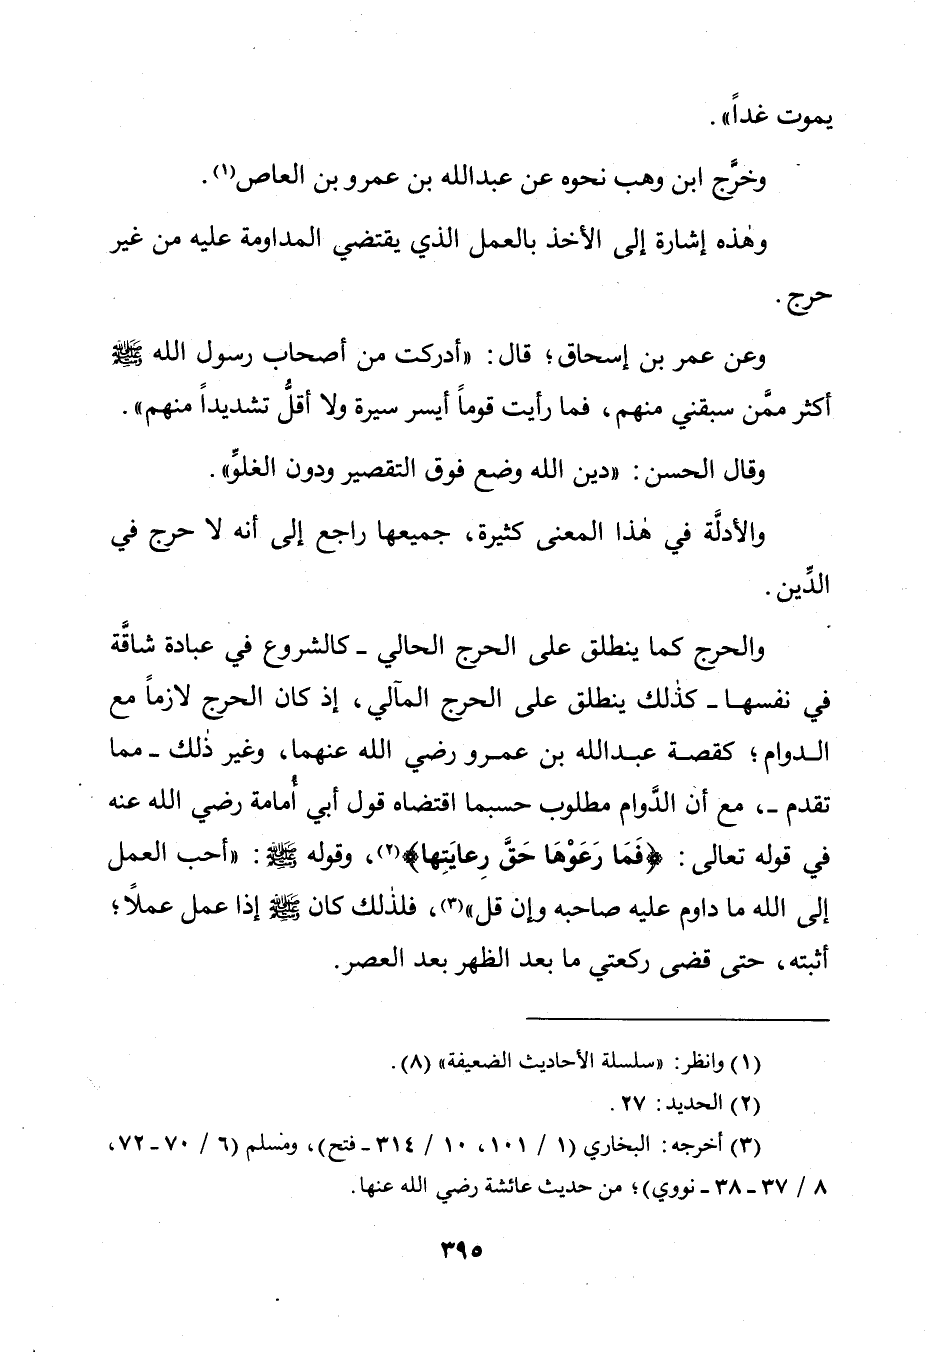 يموت غداً».
وخرَّج ابن وهب نحوه عن عبدالله بن عمرو بن العاص(١).
وهٰذه إشارة إلى الأخذ بالعمل الذي يقتضي المداومة عليه من غير
حرج.
وعن عمر بن إسحاق؛ قال: «أدركت من أصحاب رسول الله ﷺ
أكثر ممَّن سبقني منهم، فما رأيت قوماً أيسر سيرة ولا أقلُّ تشديداً منهم».
وقال الحسن: «دين الله وضع فوق التقصير ودون الغلوِّ».
والأدلَّة في هٰذا المعنى كثيرة، جميعها راجع إلى أنه لا حرج في
الدِّين.
والحرج كما ينطلق على الحرج الحالي ـ كالشروع في عبادة شاقَّة
في نفسهـا ـ كذٰلك ينطلق على الحرج المآلي، إذ كان الحرج لازماً مع
الـدوام؛ كقصـة عبـدالله بن عمـرو رضي الله عنهما، وغير ذٰلك ـ مما
تقدم ـ، مع أن الدَّوام مطلوب حسبما اقتضاه قول أبي أُمامة رضي الله عنه
في قوله تعالى: ﴿فَمَا رَعَوْهَا حَقَّ رِعايَتِها﴾(٢)، وقوله ﷺ: «أحب العمل
إلى الله ما داوم عليه صاحبه وإن قل»(٣)، فلذٰلك كان ﷺ إذا عمل عملًا؛
أثبته، حتى قضى ركعتي ما بعد الظهر بعد العصر.
(١) وانظر: «سلسلة الأحاديث الضعيفة» (٨).
(٢) الحديد: ٢٧.
(٣) أخرجه: البخاري (١ / ١٠١، ١٠ / ٣١٤ ـ فتح)، ومسلم (٦ / ٧٠ ـ ٧٢،
٨ / ٣٧ ـ ٣٨ ـ نووي)؛ من حديث عائشة رضي الله عنها.
٣٩٥